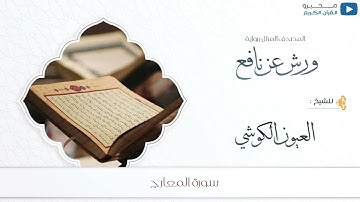 محبرو
القرآن الكريم
المصحف المرتل برواية
ورش عن نافع
للشيخ :
العيون الكوشي
سورة المعارج